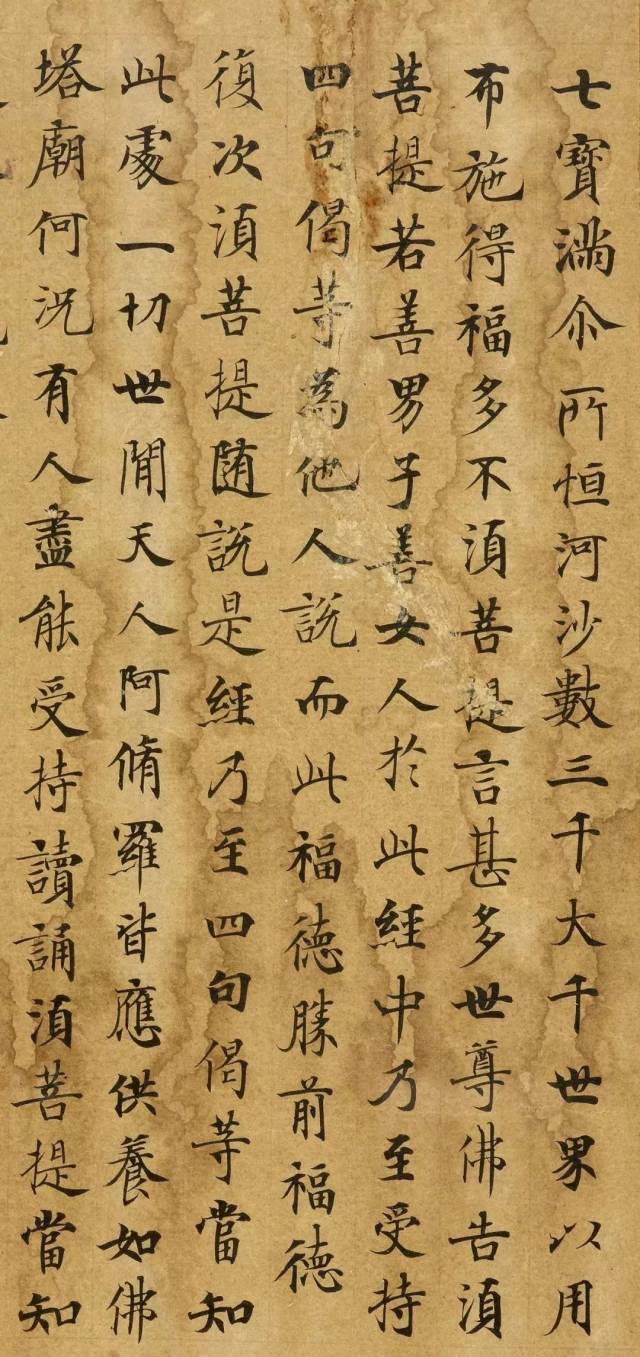 七寶滿尒所恒河沙數三千大千世界以用
布施得福多不須菩提言甚多世尊佛告須
菩提若善男子善女人於此經中乃至受持
四句偈等為他人說而此福德勝前福德
復次須菩提随說是經乃至四句偈等當知
此處一切世間天人阿脩羅皆應供養如佛
塔廟何況有人盡能受持讀誦須菩提當知